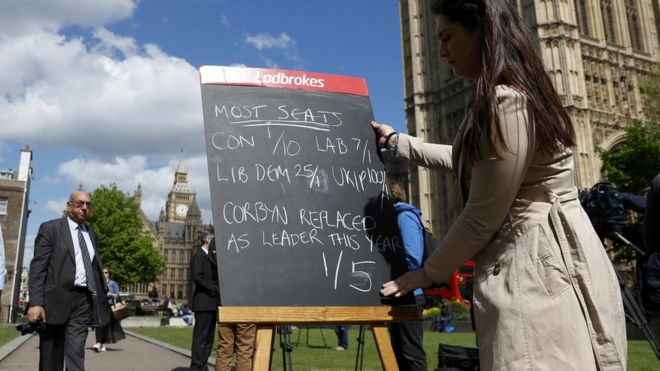 Ladbrokes
MOST SEATS
CON 1/10 LAB 7/1
LIB DEM 25/1 UKIP 100/1
CORBYN REPLACED
AS LEADER THIS YEAR
1/5